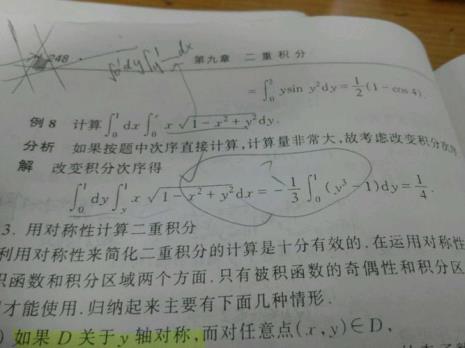 248 第九章 二重积分
∫₀¹dy∫ᵧ¹ dx
= ∫₀² ysin y²dy = 1/2 (1 − cos 4).
例 8 计算∫₀¹ dx∫₀ˣ x √(1 − x² + y²) dy.
分析 如果按题中次序直接计算,计算量非常大,故考虑改变积分次序
解 改变积分次序得
∫₀¹ dy∫ᵧ¹ x √(1 − x² + y²) dx = − 1/3 ∫₀¹ (y³ − 1)dy = 1/4.
3. 用对称性计算二重积分
利用对称性来简化二重积分的计算是十分有效的.在运用对称性
积函数和积分区域两个方面.只有被积函数的奇偶性和积分区
才能使用.归纳起来主要有下面几种情形.
) 如果 D 关于 y 轴对称,而对任意点(x,y)∈D,